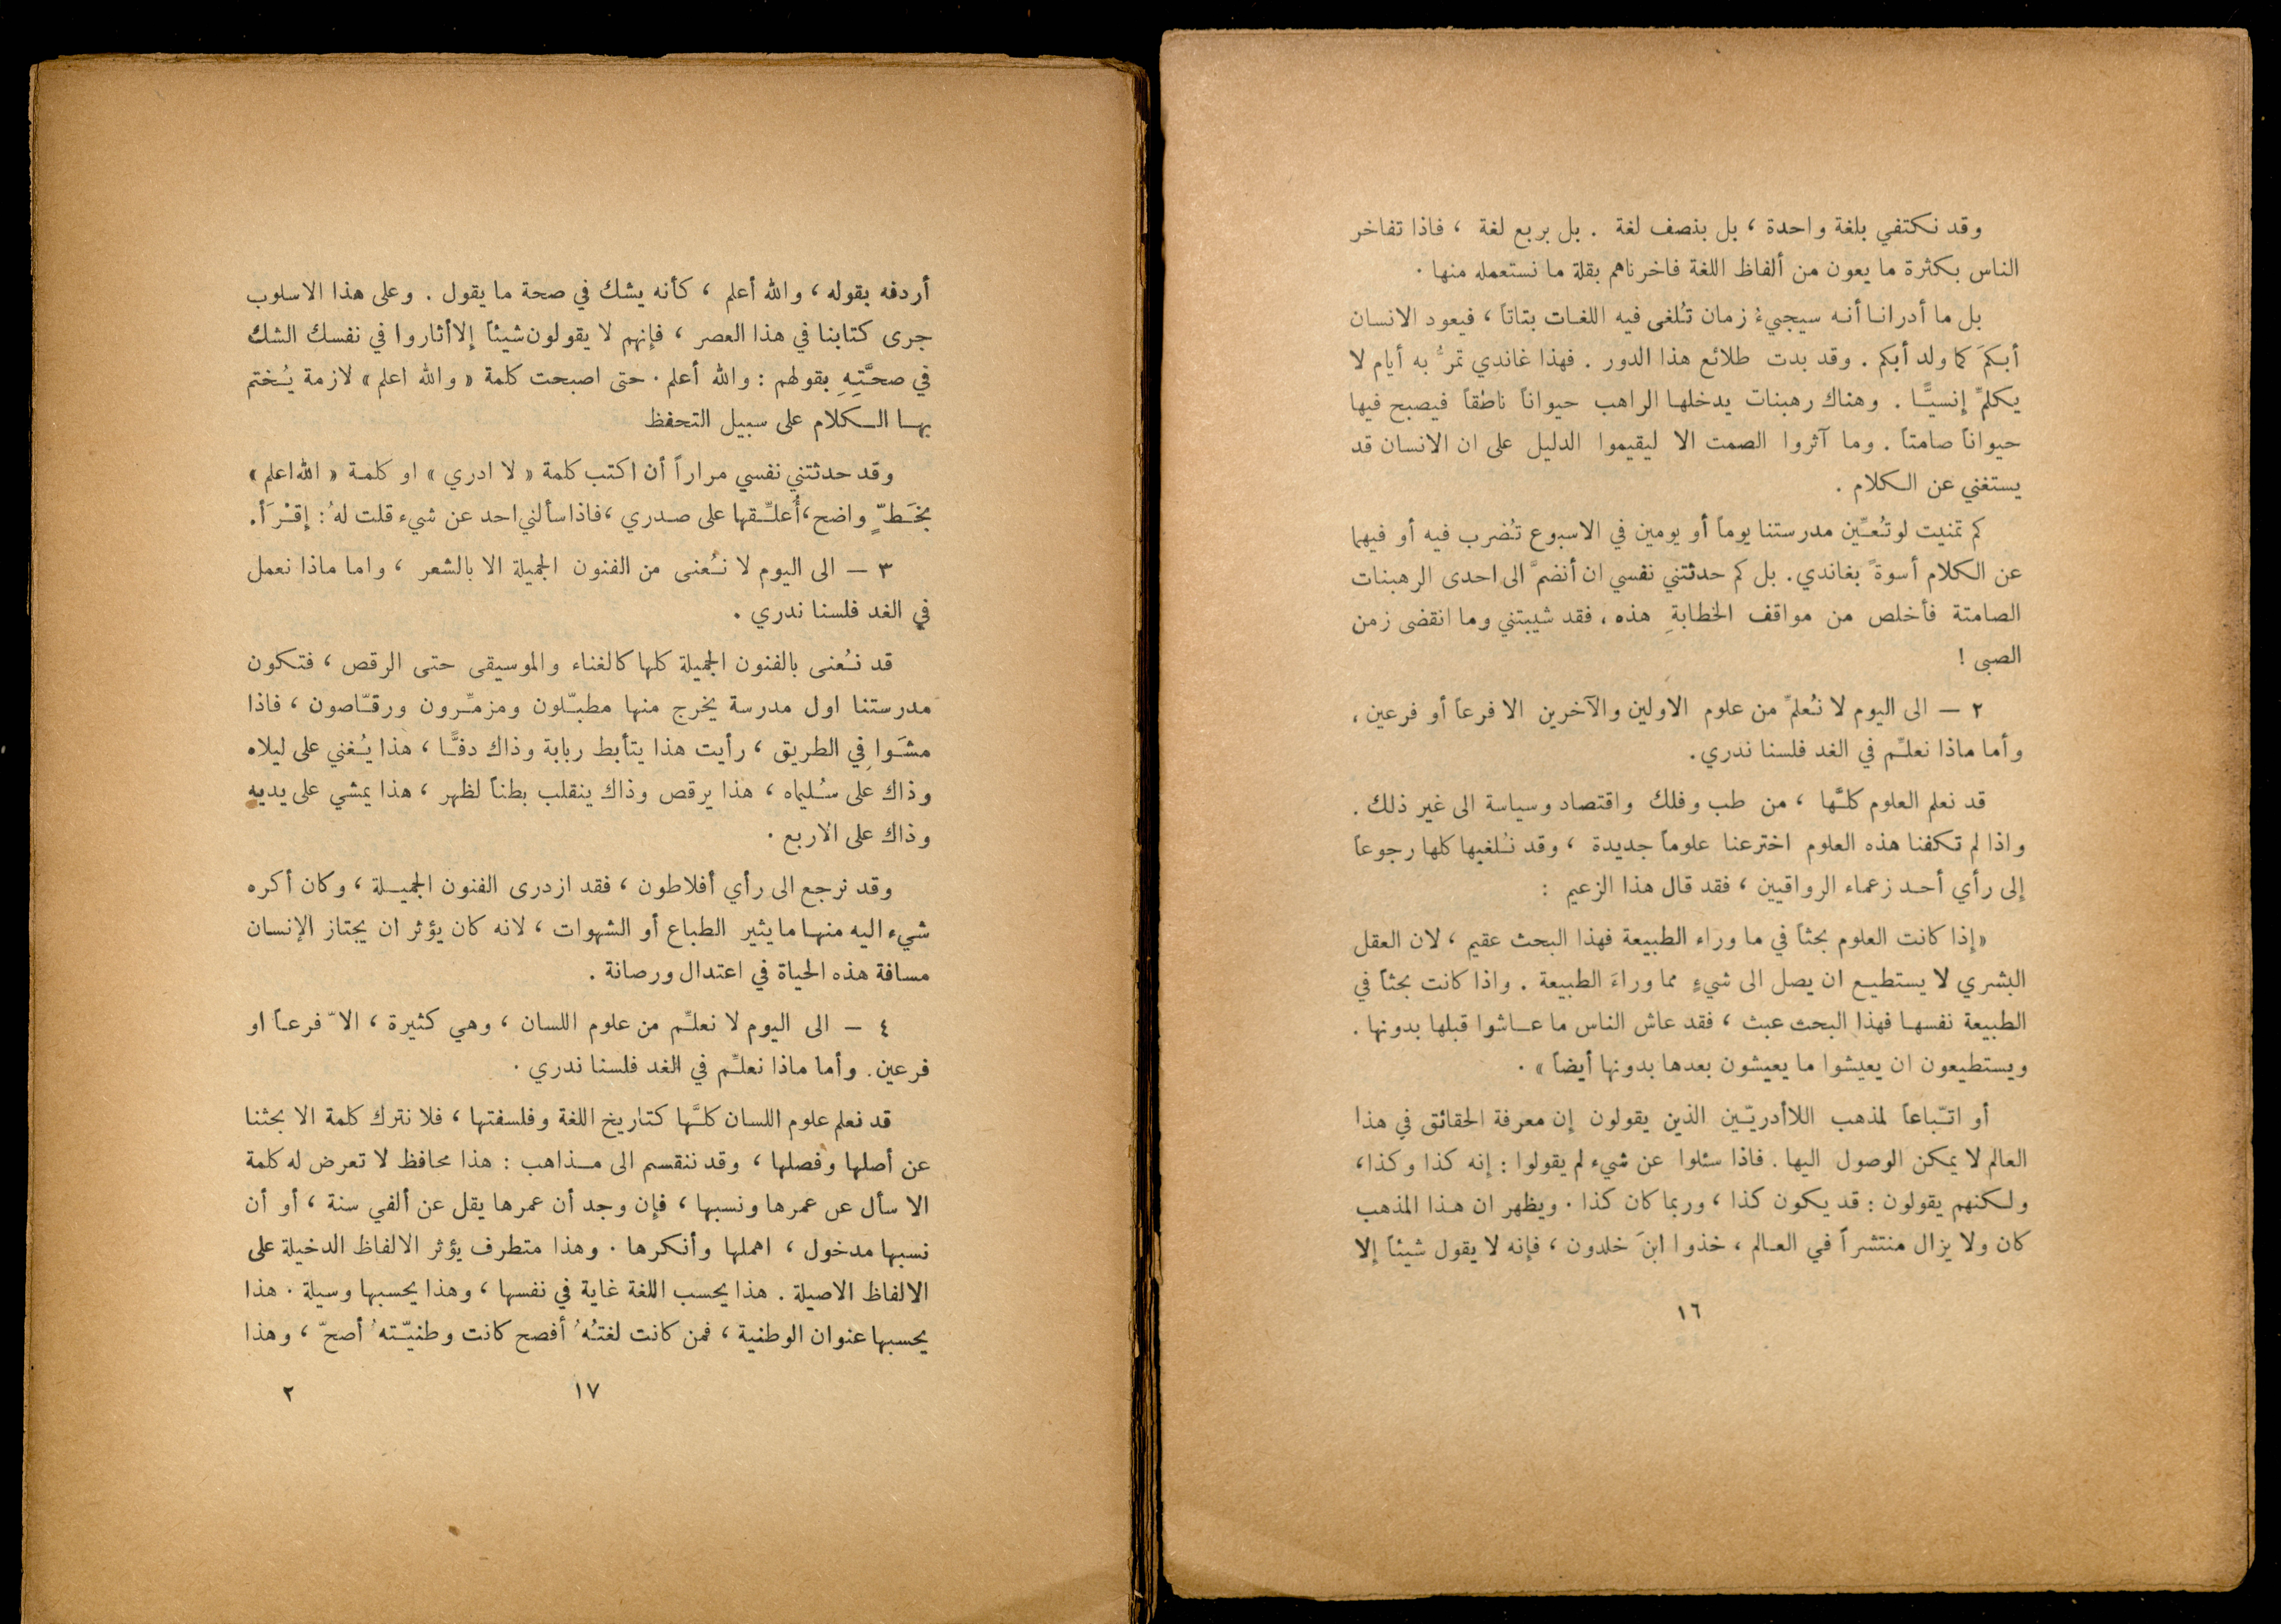 وقد نكتفي بلغة واحدة ، بل بنصف لغة . بل بربع لغة ، فاذا تفاخر
الناس بكثرة ما يعون من ألفاظ اللغة فاخرناهم بقلة ما نستعمله منها .
بل ما أدرانا أنه سيجيءُ زمان تُلغى فيه اللغات بتاتاً ، فيعود الانسان
أبكمَ كما ولد أبكم . وقد بدت طلائع هذا الدور . فهذا غاندي تمرُّ به أيام لا
يكلمِّ إنسيًّا . وهناك رهبنات يدخلها الراهب حيواناً ناطقاً فيصبح فيها
حيواناً صامتاً . وما آثروا الصمت الا ليقيموا الدليل على ان الانسان قد
يستغني عن الكلام .
كم تمنيت لو تُعيِّن مدرستنا يوماً أو يومين في الاسبوع تُضرب فيه أو فيهما
عن الكلام أسوةً بغاندي . بل كم حدثتني نفسي ان أنضمَّ الى احدى الرهبنات
الصامتة فأخلص من مواقف الخطابةِ هذه ، فقد شيبتني وما انقضى زمن
الصبى !
٢ — الى اليوم لا نُعلمِّ من علوم الاولين والآخرين الا فرعاً أو فرعين ،
وأما ماذا نعلِّم في الغد فلسنا ندري .
قد نعلم العلوم كلَّها ، من طب وفلك واقتصاد وسياسة الى غير ذلك .
واذا لم تكفنا هذه العلوم اخترعنا علوماً جديدة ، وقد نُلغيها كلها رجوعاً
إلى رأي أحد زعماء الرواقيين ، فقد قال هذا الزعيم :
« إذا كانت العلوم بحثاً في ما وراء الطبيعة فهذا البحث عقيم ، لان العقل
البشري لا يستطيع ان يصل الى شيءٍ مما وراءَ الطبيعة . واذا كانت بحثاً في
الطبيعة نفسها فهذا البحث عبث ، فقد عاش الناس ما عاشوا قبلها بدونها .
ويستطيعون ان يعيشوا ما يعيشون بعدها بدونها أيضاً » .
أو اتّباعاً لمذهب اللاأدريّين الذين يقولون إن معرفة الحقائق في هذا
العالم لا يمكن الوصول اليها . فاذا سئلوا عن شيء لم يقولوا : إنه كذا وكذا ،
ولكنهم يقولون : قد يكون كذا ، وربما كان كذا . ويظهر ان هذا المذهب
كان ولا يزال منتشراً في العالم ، خذوا ابنَ خلدون ، فإنه لا يقول شيئاً إلا
١٦
أردفه بقوله ، والله أعلم ، كأنه يشك في صحة ما يقول . وعلى هذا الاسلوب
جرى كتابنا في هذا العصر ، فإنهم لا يقولون شيئاً إلا أثاروا في نفسك الشك
في صحَّتِهِ بقولهم : والله أعلم . حتى اصبحت كلمة « والله اعلم » لازمة يُختم
بها الكلام على سبيل التحفظ
وقد حدثتني نفسي مراراً أن اكتب كلمة « لا ادري » او كلمة « الله اعلم »
بخَطٍّ واضح ، أُعلِّقها على صدري ، فاذا سألني احد عن شيء قلت لهُ : إقْرَأ .
٣ — الى اليوم لا نُعنى من الفنون الجميلة الا بالشعر ، واما ماذا نعمل
في الغد فلسنا ندري .
قد نُعنى بالفنون الجميلة كلها كالغناء والموسيقى حتى الرقص ، فتكون
مدرستنا اول مدرسة يخرج منها مطبّلون ومزمِّرون ورقّاصون ، فاذا
مشَوا في الطريق ، رأيت هذا يتأبط ربابة وذاك دفًّا ، هذا يُغني على ليلاه
وذاك على سُليماه ، هذا يرقص وذاك ينقلب بطناً لظهر ، هذا يمشي على يديه
وذاك على الاربع .
وقد نرجع الى رأي أفلاطون ، فقد ازدرى الفنون الجميلة ، وكان أكره
شيء اليه منها ما يثير الطباع أو الشهوات ، لانه كان يؤثر ان يجتاز الإنسان
مسافة هذه الحياة في اعتدال ورصانة .
٤ — الى اليوم لا نعلِّم من علوم اللسان ، وهي كثيرة ، الاّ فرعاً او
فرعين . وأما ماذا نعلِّم في الغد فلسنا ندري .
قد نعلم علوم اللسان كلَّها كتاريخ اللغة وفلسفتها ، فلا نترك كلمة الا بحثنا
عن أصلها وفصلها ، وقد ننقسم الى مذاهب : هذا محافظ لا تعرض له كلمة
الا سأل عن عمرها ونسبها ، فإن وجد أن عمرها يقل عن ألفي سنة ، أو أن
نسبها مدخول ، اهملها وأنكرها . وهذا متطرف يؤثر الالفاظ الدخيلة على
الالفاظ الاصيلة . هذا يحسب اللغة غاية في نفسها ، وهذا يحسبها وسيلة . هذا
يحسبها عنوان الوطنية ، فمن كانت لغتُهُ أفصح كانت وطنيّتهُ أصحّ ، وهذا
١٧
٢